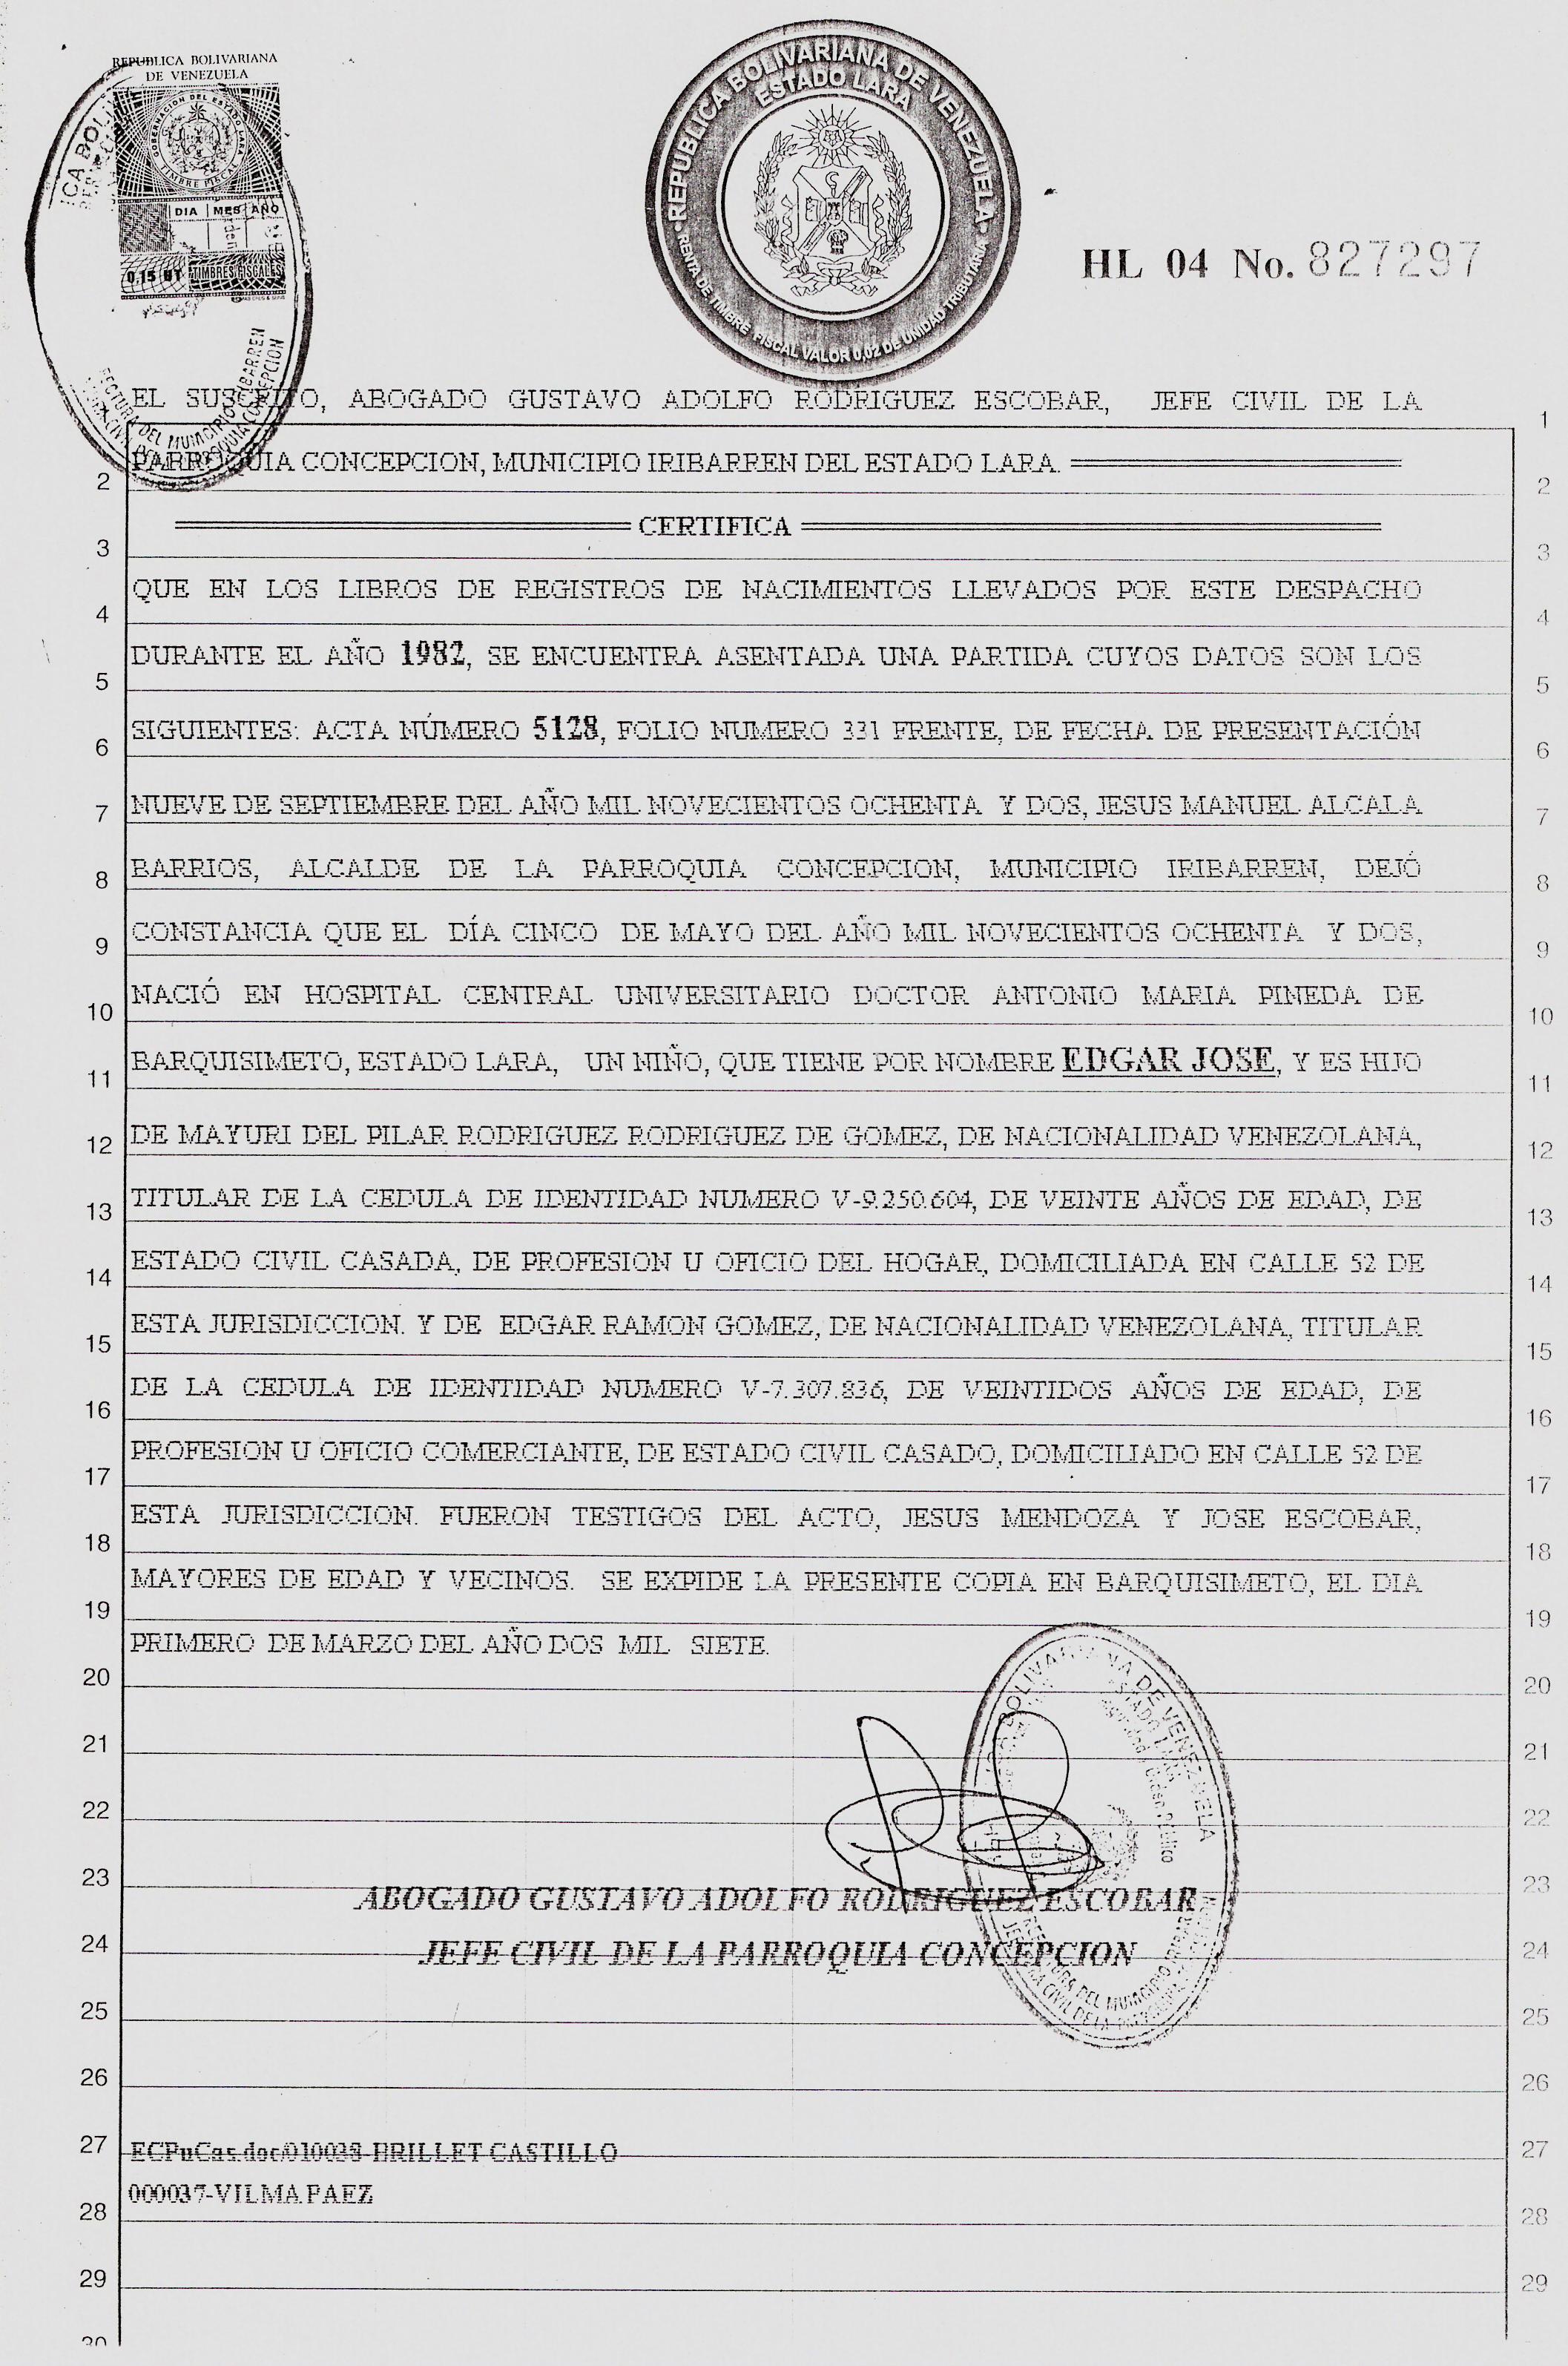 REPUBLICA BOLIVARIANA
DE VENEZUELA
GOBERNACION DEL ESTADO LARA
TIMBRE FISCAL
DIA MES AÑO
0,15 UT TIMBRES FISCALES
REPUBLICA BOLIVARIANA DE VENEZUELA
ESTADO LARA
RENTA DE TIMBRE FISCAL VALOR 0,02 DE UNIDAD TRIBUTARIA
HL 04 No. 827297
EL SUSCRITO, ABOGADO GUSTAVO ADOLFO RODRIGUEZ ESCOBAR, JEFE CIVIL DE LA 1
2 PARROQUIA CONCEPCION, MUNICIPIO IRIBARREN DEL ESTADO LARA. 2
3 CERTIFICA 3
4 QUE EN LOS LIBROS DE REGISTROS DE NACIMIENTOS LLEVADOS POR ESTE DESPACHO 4
5 DURANTE EL AÑO 1982, SE ENCUENTRA ASENTADA UNA PARTIDA CUYOS DATOS SON LOS 5
6 SIGUIENTES: ACTA NÚMERO 5128, FOLIO NUMERO 331 FRENTE, DE FECHA DE PRESENTACIÓN 6
7 NUEVE DE SEPTIEMBRE DEL AÑO MIL NOVECIENTOS OCHENTA Y DOS, JESUS MANUEL ALCALA 7
8 BARRIOS, ALCALDE DE LA PARROQUIA CONCEPCION, MUNICIPIO IRIBARREN, DEJÓ 8
9 CONSTANCIA QUE EL DÍA CINCO DE MAYO DEL AÑO MIL NOVECIENTOS OCHENTA Y DOS, 9
10 NACIÓ EN HOSPITAL CENTRAL UNIVERSITARIO DOCTOR ANTONIO MARIA PINEDA DE 10
11 BARQUISIMETO, ESTADO LARA, UN NIÑO, QUE TIENE POR NOMBRE EDGAR JOSE, Y ES HIJO 11
12 DE MAYURI DEL PILAR RODRIGUEZ RODRIGUEZ DE GOMEZ, DE NACIONALIDAD VENEZOLANA, 12
13 TITULAR DE LA CEDULA DE IDENTIDAD NUMERO V-9.250.604, DE VEINTE AÑOS DE EDAD, DE 13
14 ESTADO CIVIL CASADA, DE PROFESION U OFICIO DEL HOGAR, DOMICILIADA EN CALLE 52 DE 14
15 ESTA JURISDICCION. Y DE EDGAR RAMON GOMEZ, DE NACIONALIDAD VENEZOLANA, TITULAR 15
16 DE LA CEDULA DE IDENTIDAD NUMERO V-7.307.836, DE VEINTIDOS AÑOS DE EDAD, DE 16
17 PROFESION U OFICIO COMERCIANTE, DE ESTADO CIVIL CASADO, DOMICILIADO EN CALLE 52 DE 17
18 ESTA JURISDICCION. FUERON TESTIGOS DEL ACTO, JESUS MENDOZA Y JOSE ESCOBAR, 18
19 MAYORES DE EDAD Y VECINOS. SE EXPIDE LA PRESENTE COPIA EN BARQUISIMETO, EL DIA 19
20 PRIMERO DE MARZO DEL AÑO DOS MIL SIETE. 20
21 21
22 22
23 ABOGADO GUSTAVO ADOLFO RODRIGUEZ ESCOBAR 23
24 JEFE CIVIL DE LA PARROQUIA CONCEPCION 24
25 25
26 26
27 ECPuCas.doc/010038-BRILLET CASTILLO 27
28 000037-VILMA PAEZ 28
29 29
30